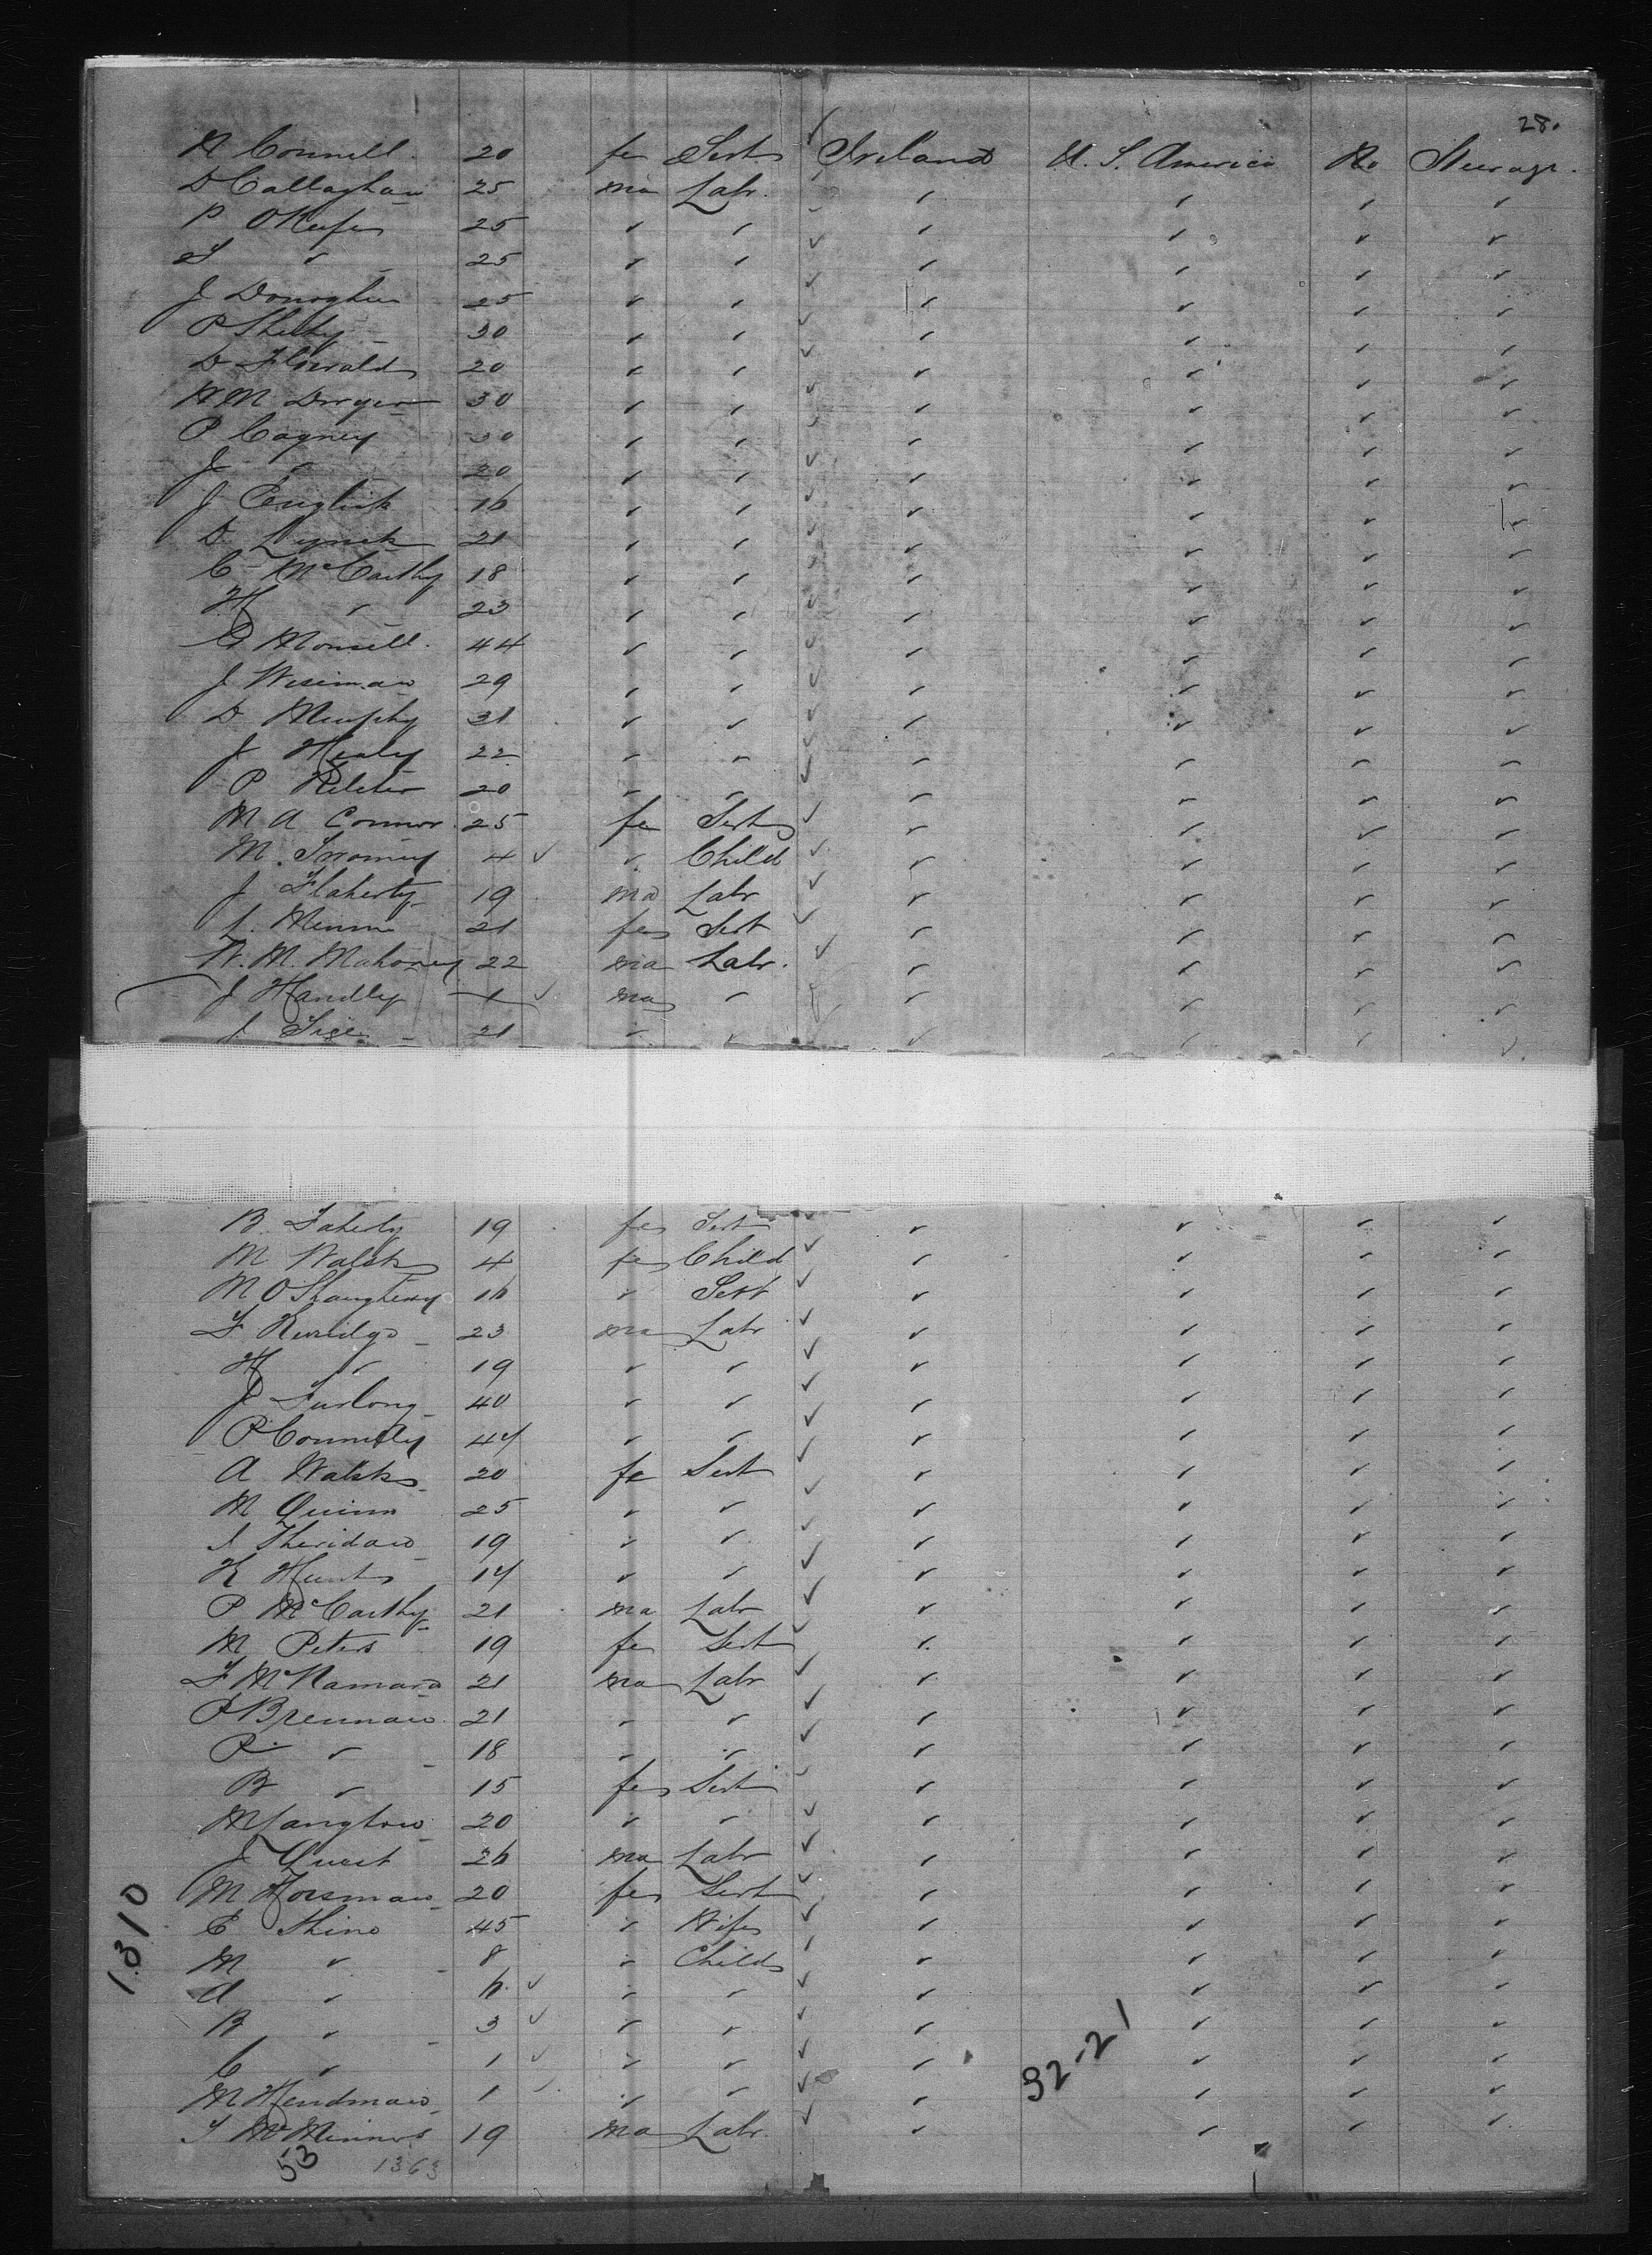 28.
N Connell. 20 fe Sert Ireland U. S. America No Steerage.
D Callaghan 25 ma Labr. " " " "
P OKeefe 25 " " " " " "
S " 25 " " " " " "
J Donoghue 25 " " " " " "
P Sheehy 30 " " " " " "
D Fitzgerald 20 " " " " " "
W M Dwyer 30 " " " " " "
P Cagney 30 " " " " " "
J " 20 " " " " " "
J English 16 " " " " " "
D Lynch 21 " " " " " "
C McCarthy 18 " " " " " "
H " 23 " " " " " "
G Monsell. 44 " " " " " "
J Wiseman 29 " " " " " "
D Murphy 31 " " " " " "
J Healy 22 " " " " " "
P 20 " " " " " "
M A Connor 25 fe Sert " " " "
M. Twomey 4 " Child " " " "
J Flaherty 19 ma Labr " " " "
21 fe Sert " " " "
W. M. Mahoney 22 ma Labr. " " " "
J Handley 1 ma " " " " "
J 21 " " " " " "
B. Faherty 19 fe Sert " " " "
M Walsh 4 fe Child " " " "
M O'Shaughessy 16 " Sert " " " "
F 23 ma Labr " " " "
H " 19 " " " " " "
J Furlong 40 " " " " " "
P Connelly 44 " " " " " "
A Walsh 20 fe Sert " " " "
M Quinn 25 " " " " " "
Sheridan 19 " " " " " "
K Hunt 14 " " " " " "
P McCarthy 21 ma Labr " " " "
M Peters 19 fe Sert " " " "
F McNamara 21 ma Labr " " " "
P Brennan 21 " " " " " "
P " 18 " " " " " "
B " 15 fe Sert " " " "
M Langton 20 " " " " " "
J 26 ma Labr " " " "
M Horsman 20 fe Sert " " " "
E Shine 45 " Wife " " " "
M " 8 " Child " " " "
A " 6. " " " " " "
B " 3 " " " " " "
C " 1 " " " " " "
M Hendman 1 " " " " " "
19 ma Labr. " " " "
53 1363
1310
92-21